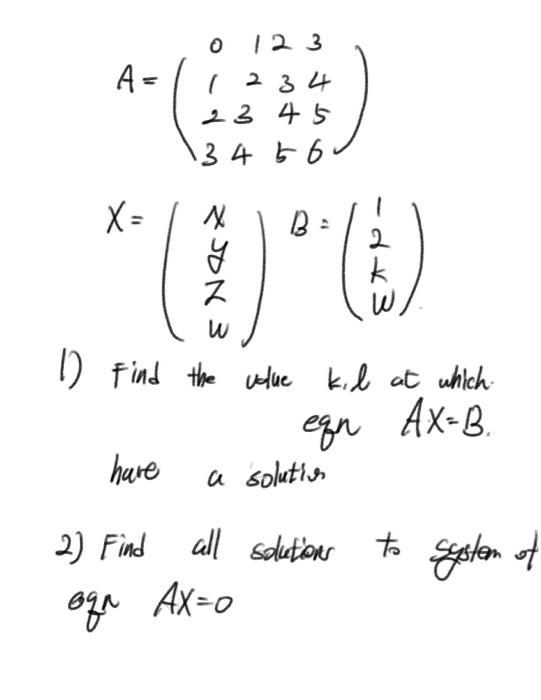 A = ( 0 1 2 3
1 2 3 4
2 3 4 5
3 4 5 6 )
X = ( x y z w ) B = ( 1 2 k w ).
1) Find the value k, l at which
eqn AX=B.
have a solution
2) Find all solutions to system of
eqn AX=0